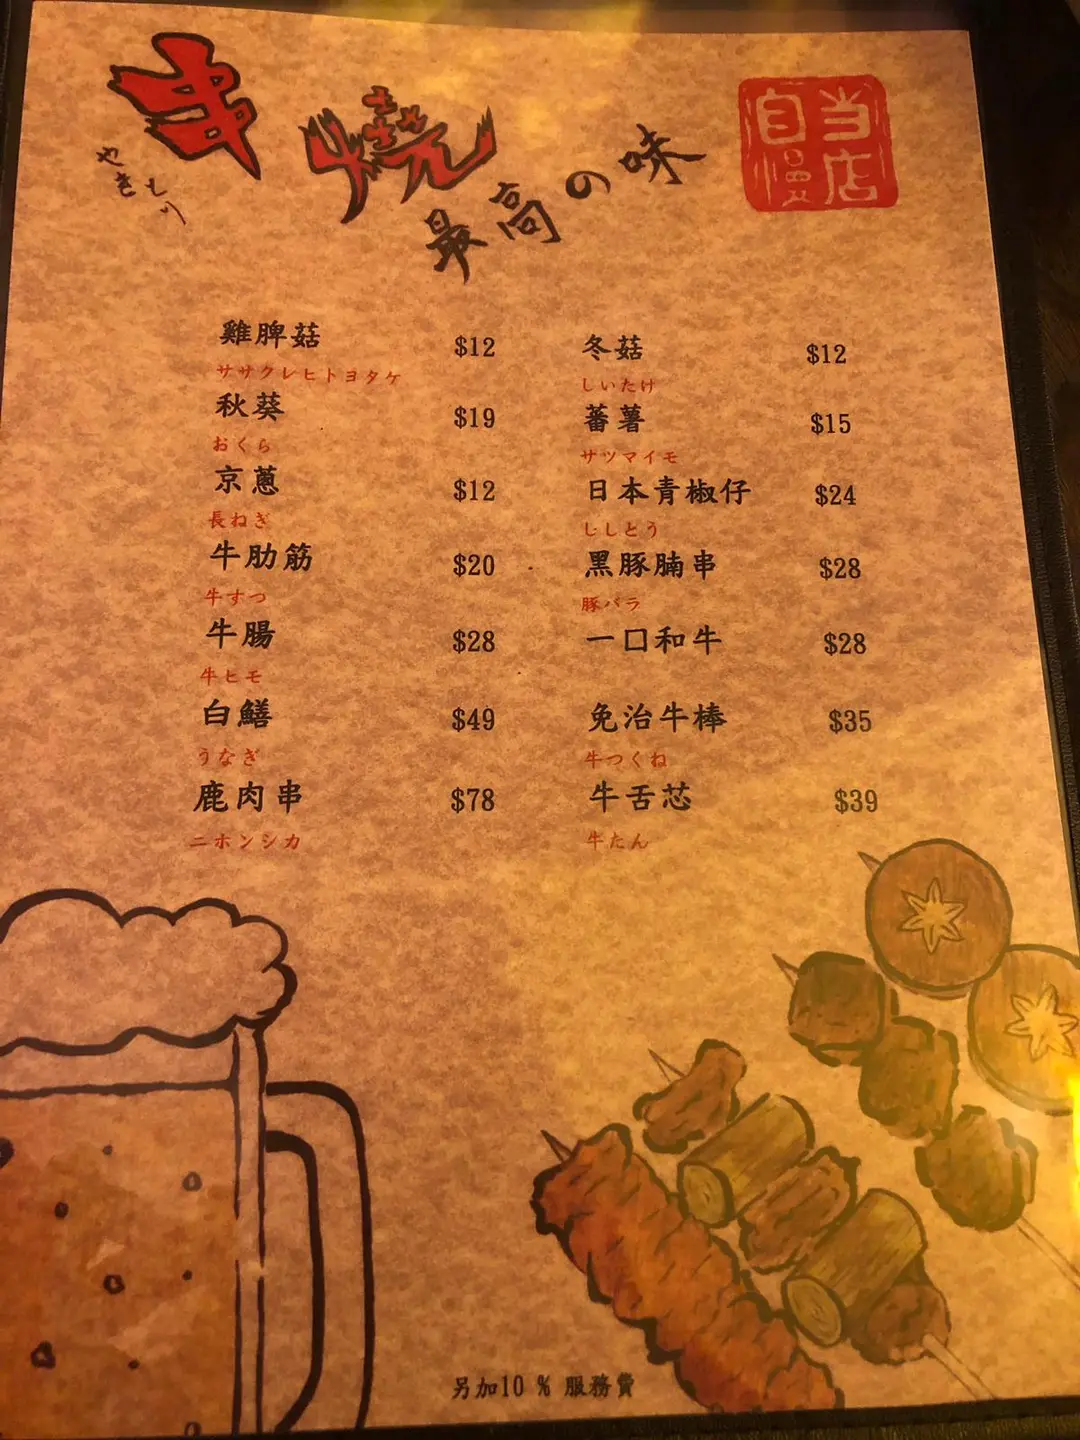 串燒
やきとり
最高の味
当店
自慢
雞脾菇 $12
ササクレヒトヨタケ
秋葵 $19
おくら
京蔥 $12
長ねぎ
牛肋筋 $20
牛すつ
牛腸 $28
牛ヒモ
白鱔 $49
うなぎ
鹿肉串 $78
ニホンシカ
冬菇 $12
しいたけ
蕃薯 $15
サツマイモ
日本青椒仔 $24
ししとう
黑豚腩串 $28
豚バラ
一口和牛 $28
免治牛棒 $35
牛つくね
牛舌芯 $39
牛たん
另加10 % 服務費